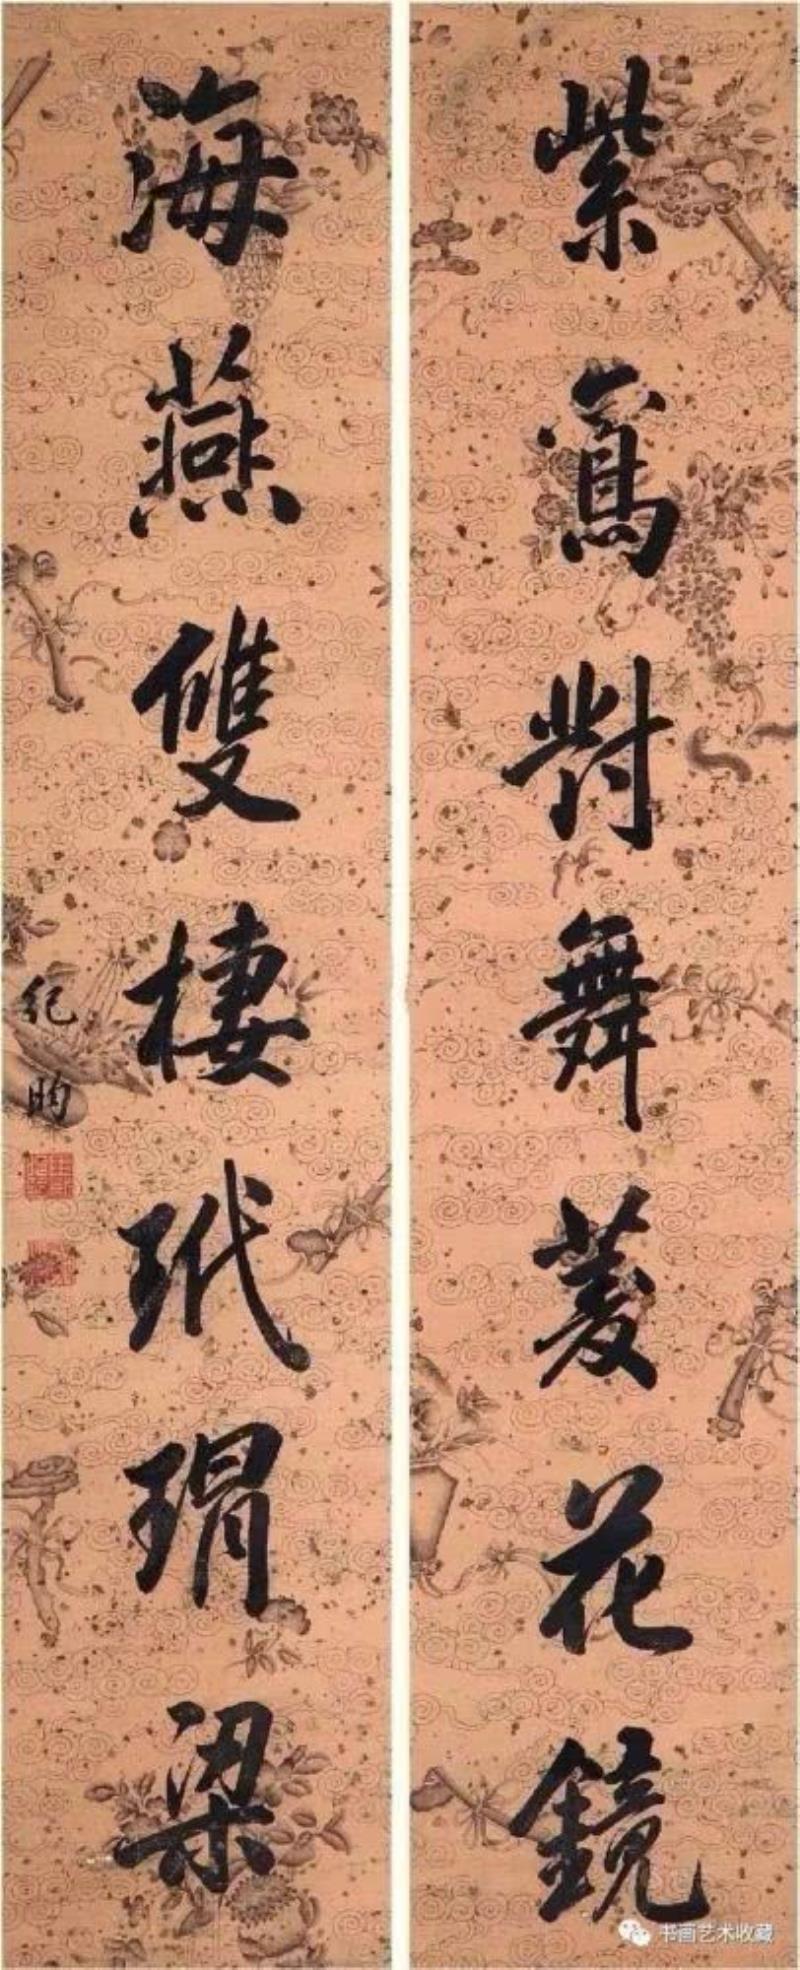 紫鸞對舞菱花鏡
海燕雙棲玳瑁梁
紀昀
书画艺术收藏